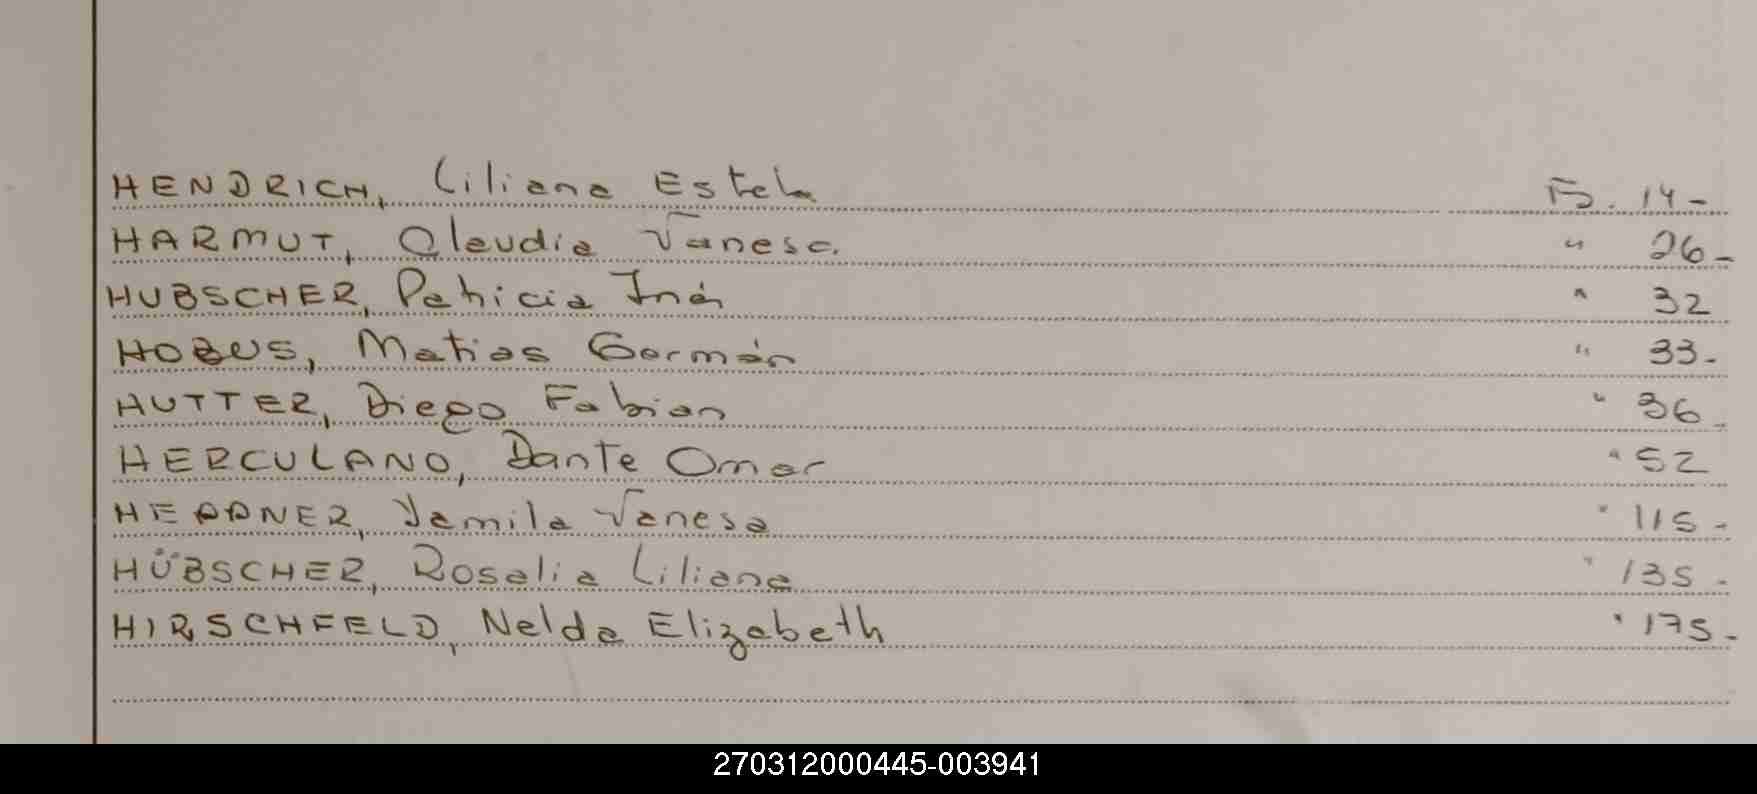 HENDRICH, Liliana Estela Fs. 14-
HARMUT, Claudia Vanesa. " 26-
HUBSCHER, Patricia Inés " 32
HOBUS, Matias Germán " 33-
HUTTER, Diego Fabian " 36-
HERCULANO, Dante Omar " 52
HEPPNER, Yamila Vanesa " 115-
HÜBSCHER, Rosalia Liliana " 135-
HIRSCHFELD, Nelda Elizabeth " 175-
270312000445-003941